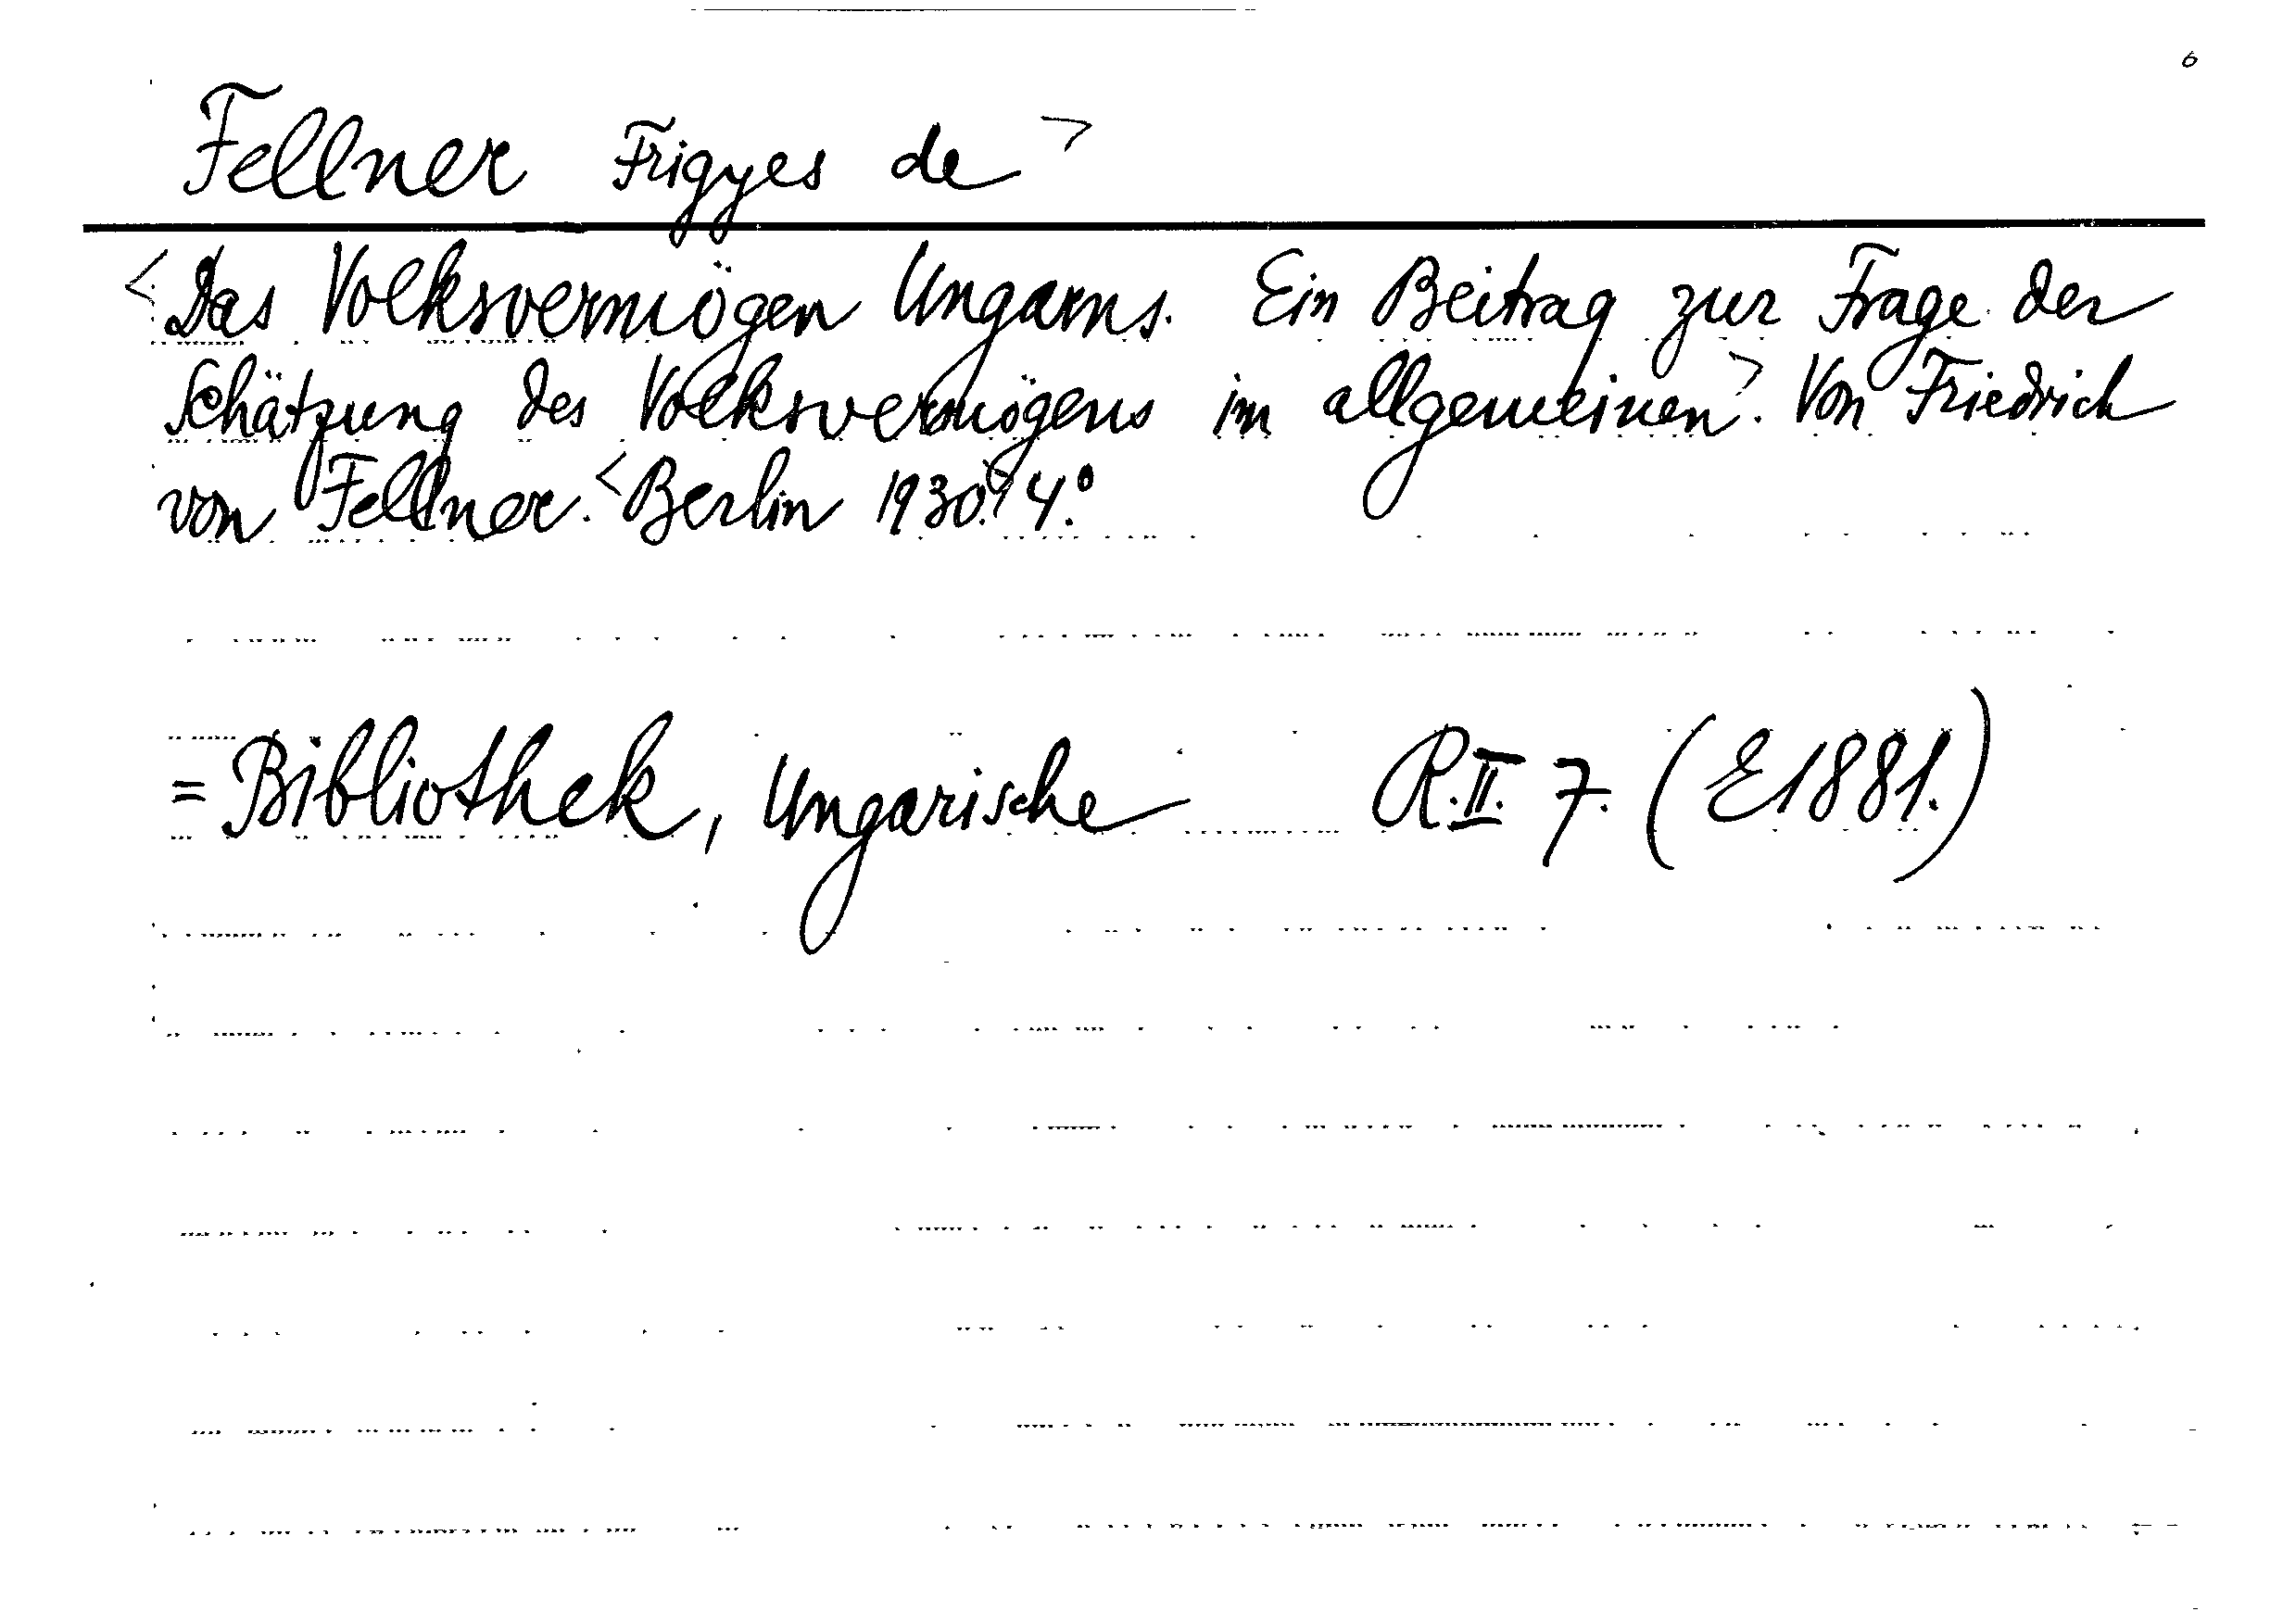 6
Fellner Frigyes de >
<Das Volksvermögen Ungarns. Ein Beitrag zur Frage der
Schätzung des Volksvermögens im allgemeinen>. Von Friedrich
von Fellner. <Berlin 1930.> 4.°
= Bibliothek, Ungarische R.II. 7. (E1881.)